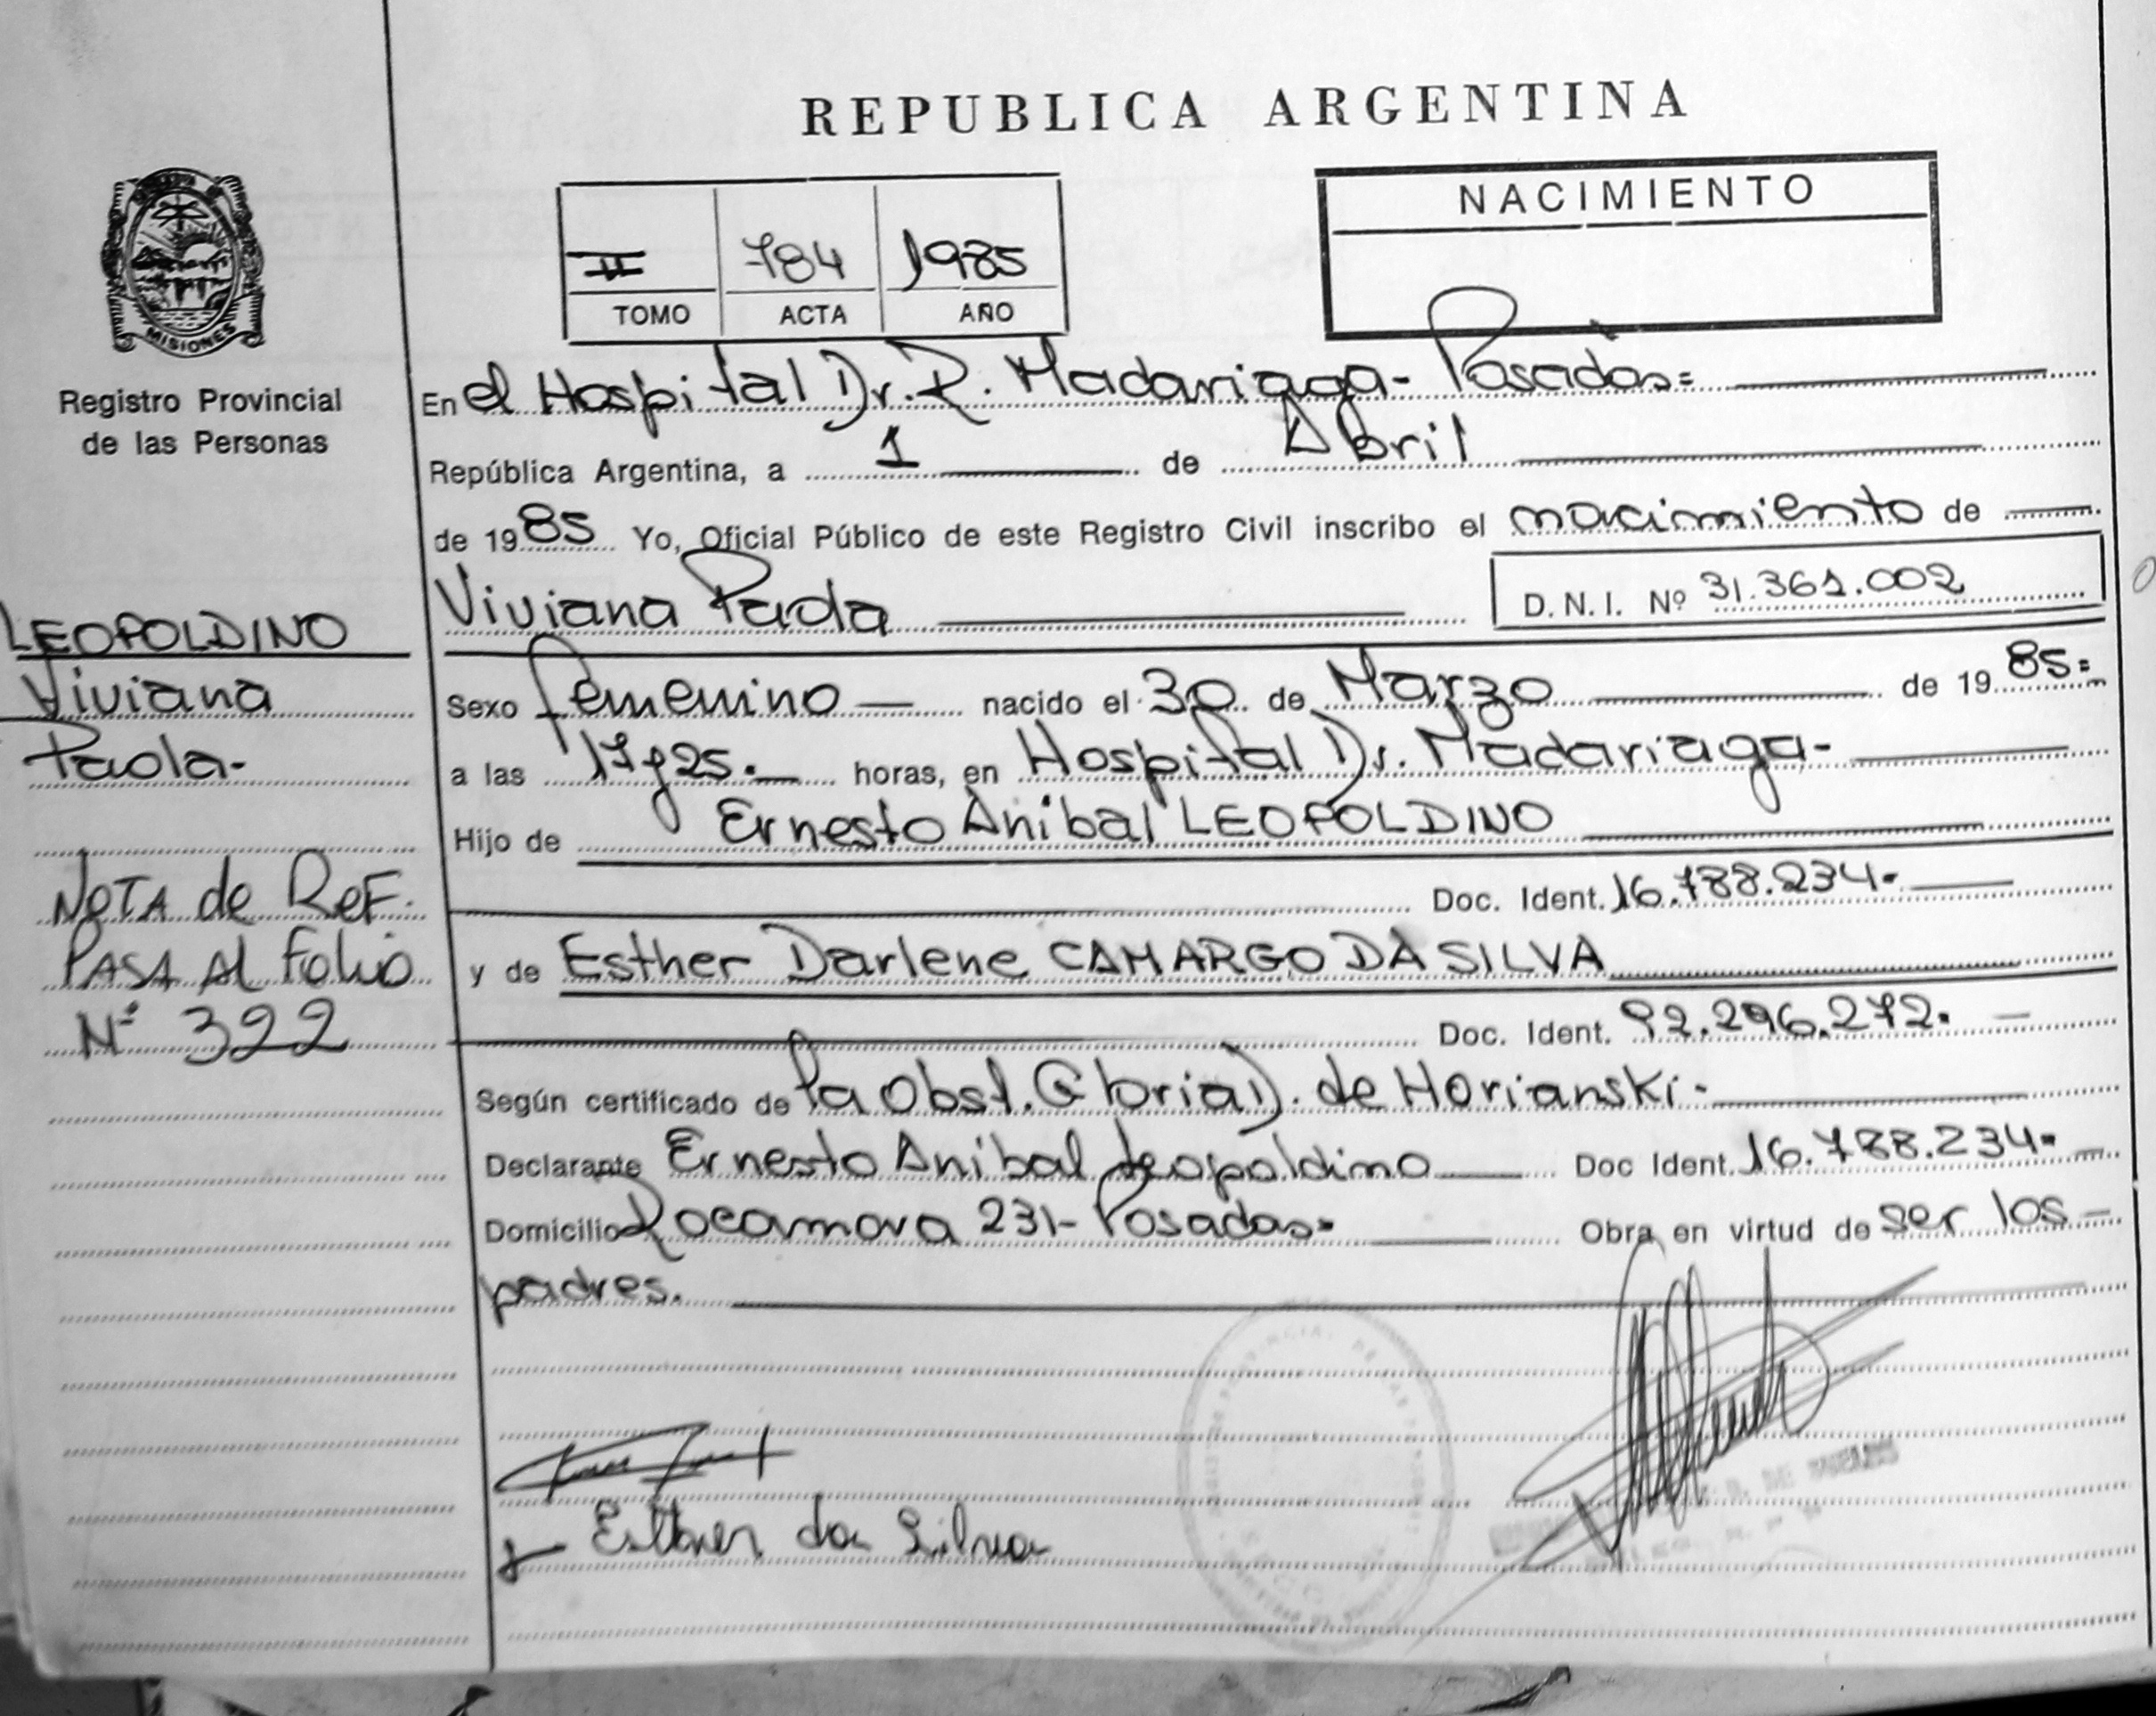 REPUBLICA ARGENTINA
NACIMIENTO
II 784 1985
TOMO ACTA AÑO
MISIONES
Registro Provincial
de las Personas
En el Hospital Dr. R. Madariaga- Posadas=
República Argentina, a 1 de Abril
de 1985 Yo, Oficial Público de este Registro Civil inscribo el nacimiento de
Viviana Paola D.N.I. Nº 31.361.002
LEOPOLDINO
Viviana
Paola-
Sexo femenino nacido el 30 de Marzo de 1985=
a las 17y25. horas, en Hospital Dr. Madariaga-
Hijo de Ernesto Anibal LEOPOLDINO
Doc. Ident. 16.788.234-
NOTA de ReF.
PASA Al Folio
Nº 322
y de Esther Darlene CAMARGO DA SILVA
Doc. Ident. 92.296.272.
Según certificado de la Obst. Gloria D. de Horianski-
Declarante Ernesto Anibal Leopoldino Doc Ident. 16.788.234-
Domicilio Rocamora 231- Posadas- Obra en virtud de ser los
padres.
Esther da Silva